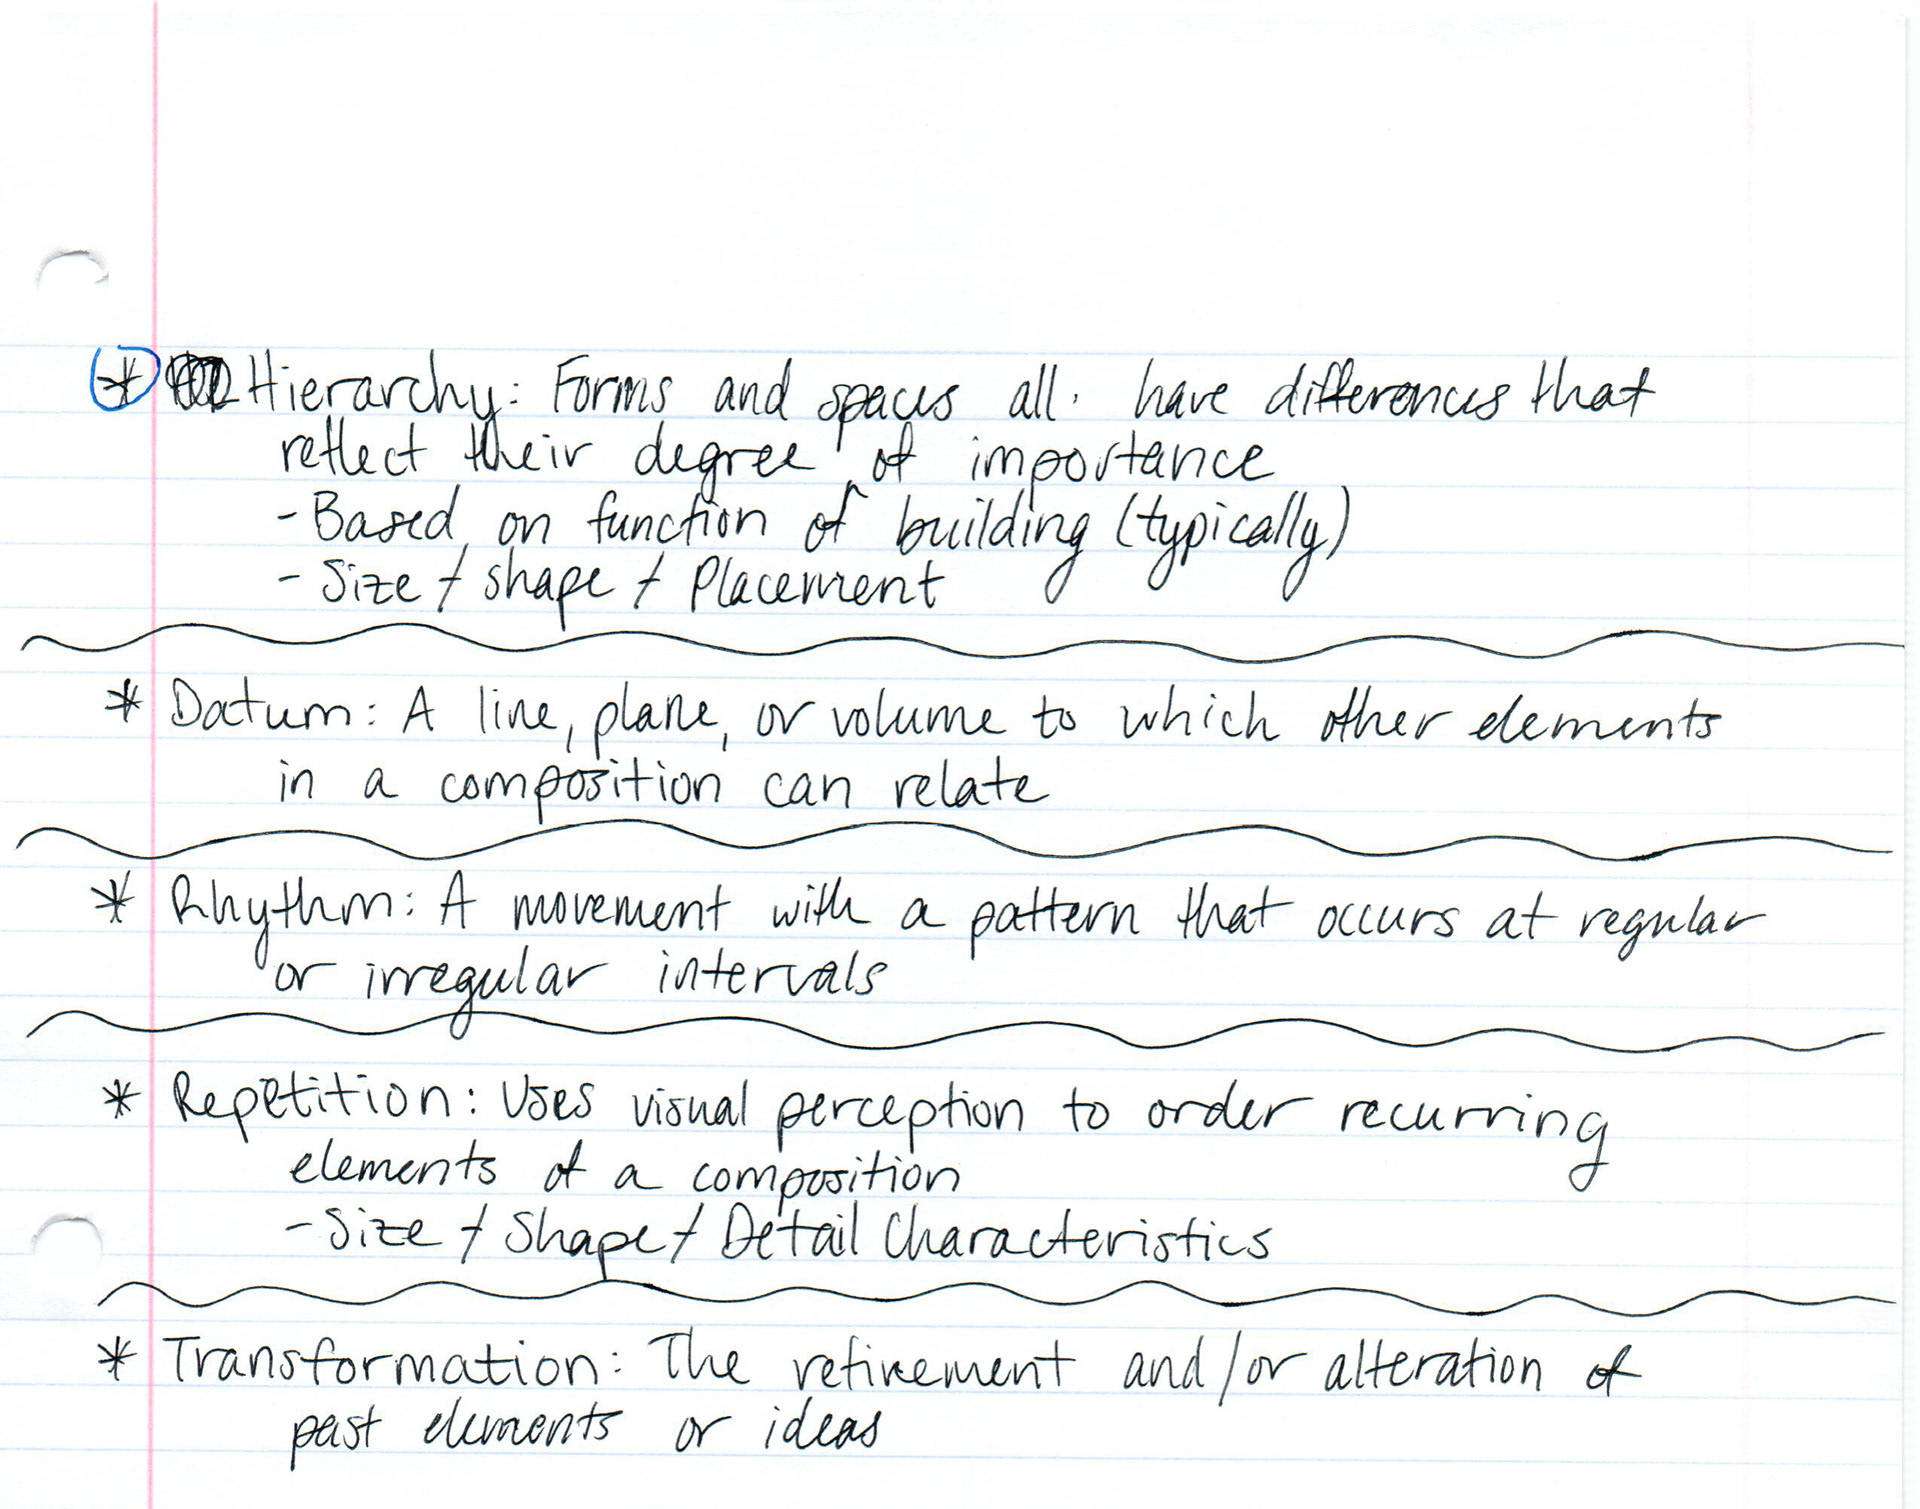 * Hierarchy: Forms and spaces all have differences that
reflect their degree of importance
- Based on function of building (typically)
- Size + shape + Placement
* Datum: A line, plane, or volume to which other elements
in a composition can relate
* Rhythm: A movement with a pattern that occurs at regular
or irregular intervals
* Repetition: Uses visual perception to order recurring
elements of a composition
- Size + Shape + Detail Characteristics
* Transformation: The refinement and/or alteration of
past elements or ideas